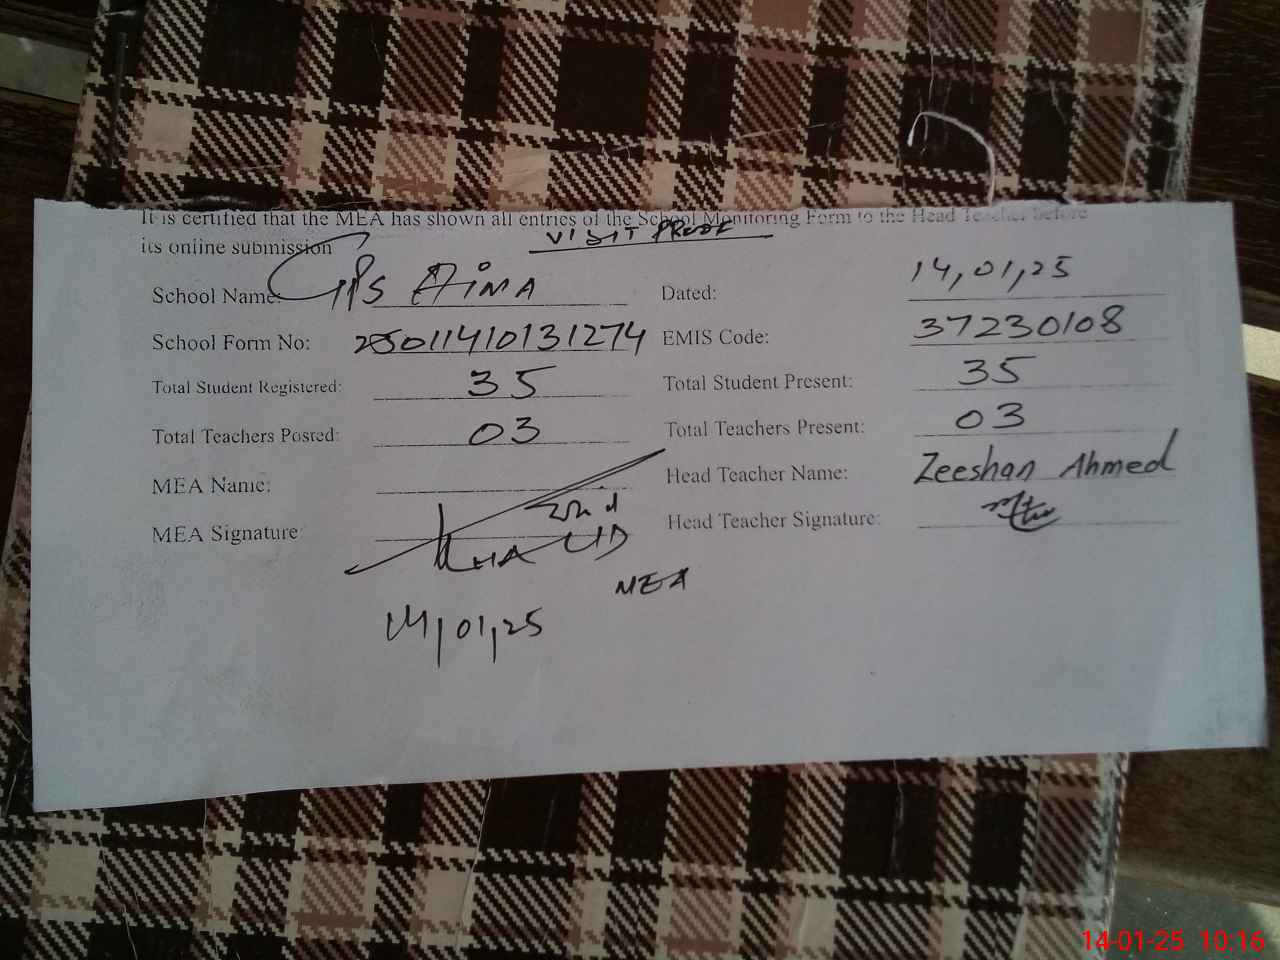 It is certified that the MEA has shown all entries of the School Monitoring Form to the Head Teacher before
its online submission
VISIT PROOF
School Name: GPS Aima Dated: 14,01,25
School Form No: 25011410131274 EMIS Code: 37230108
Total Student Registered: 35 Total Student Present: 35
Total Teachers Posted: 03 Total Teachers Present: 03
MEA Name: Head Teacher Name: Zeeshan Ahmed
MEA Signature Head Teacher Signature:
KHALID
MEA
14,01,25
14-01-25 10:16